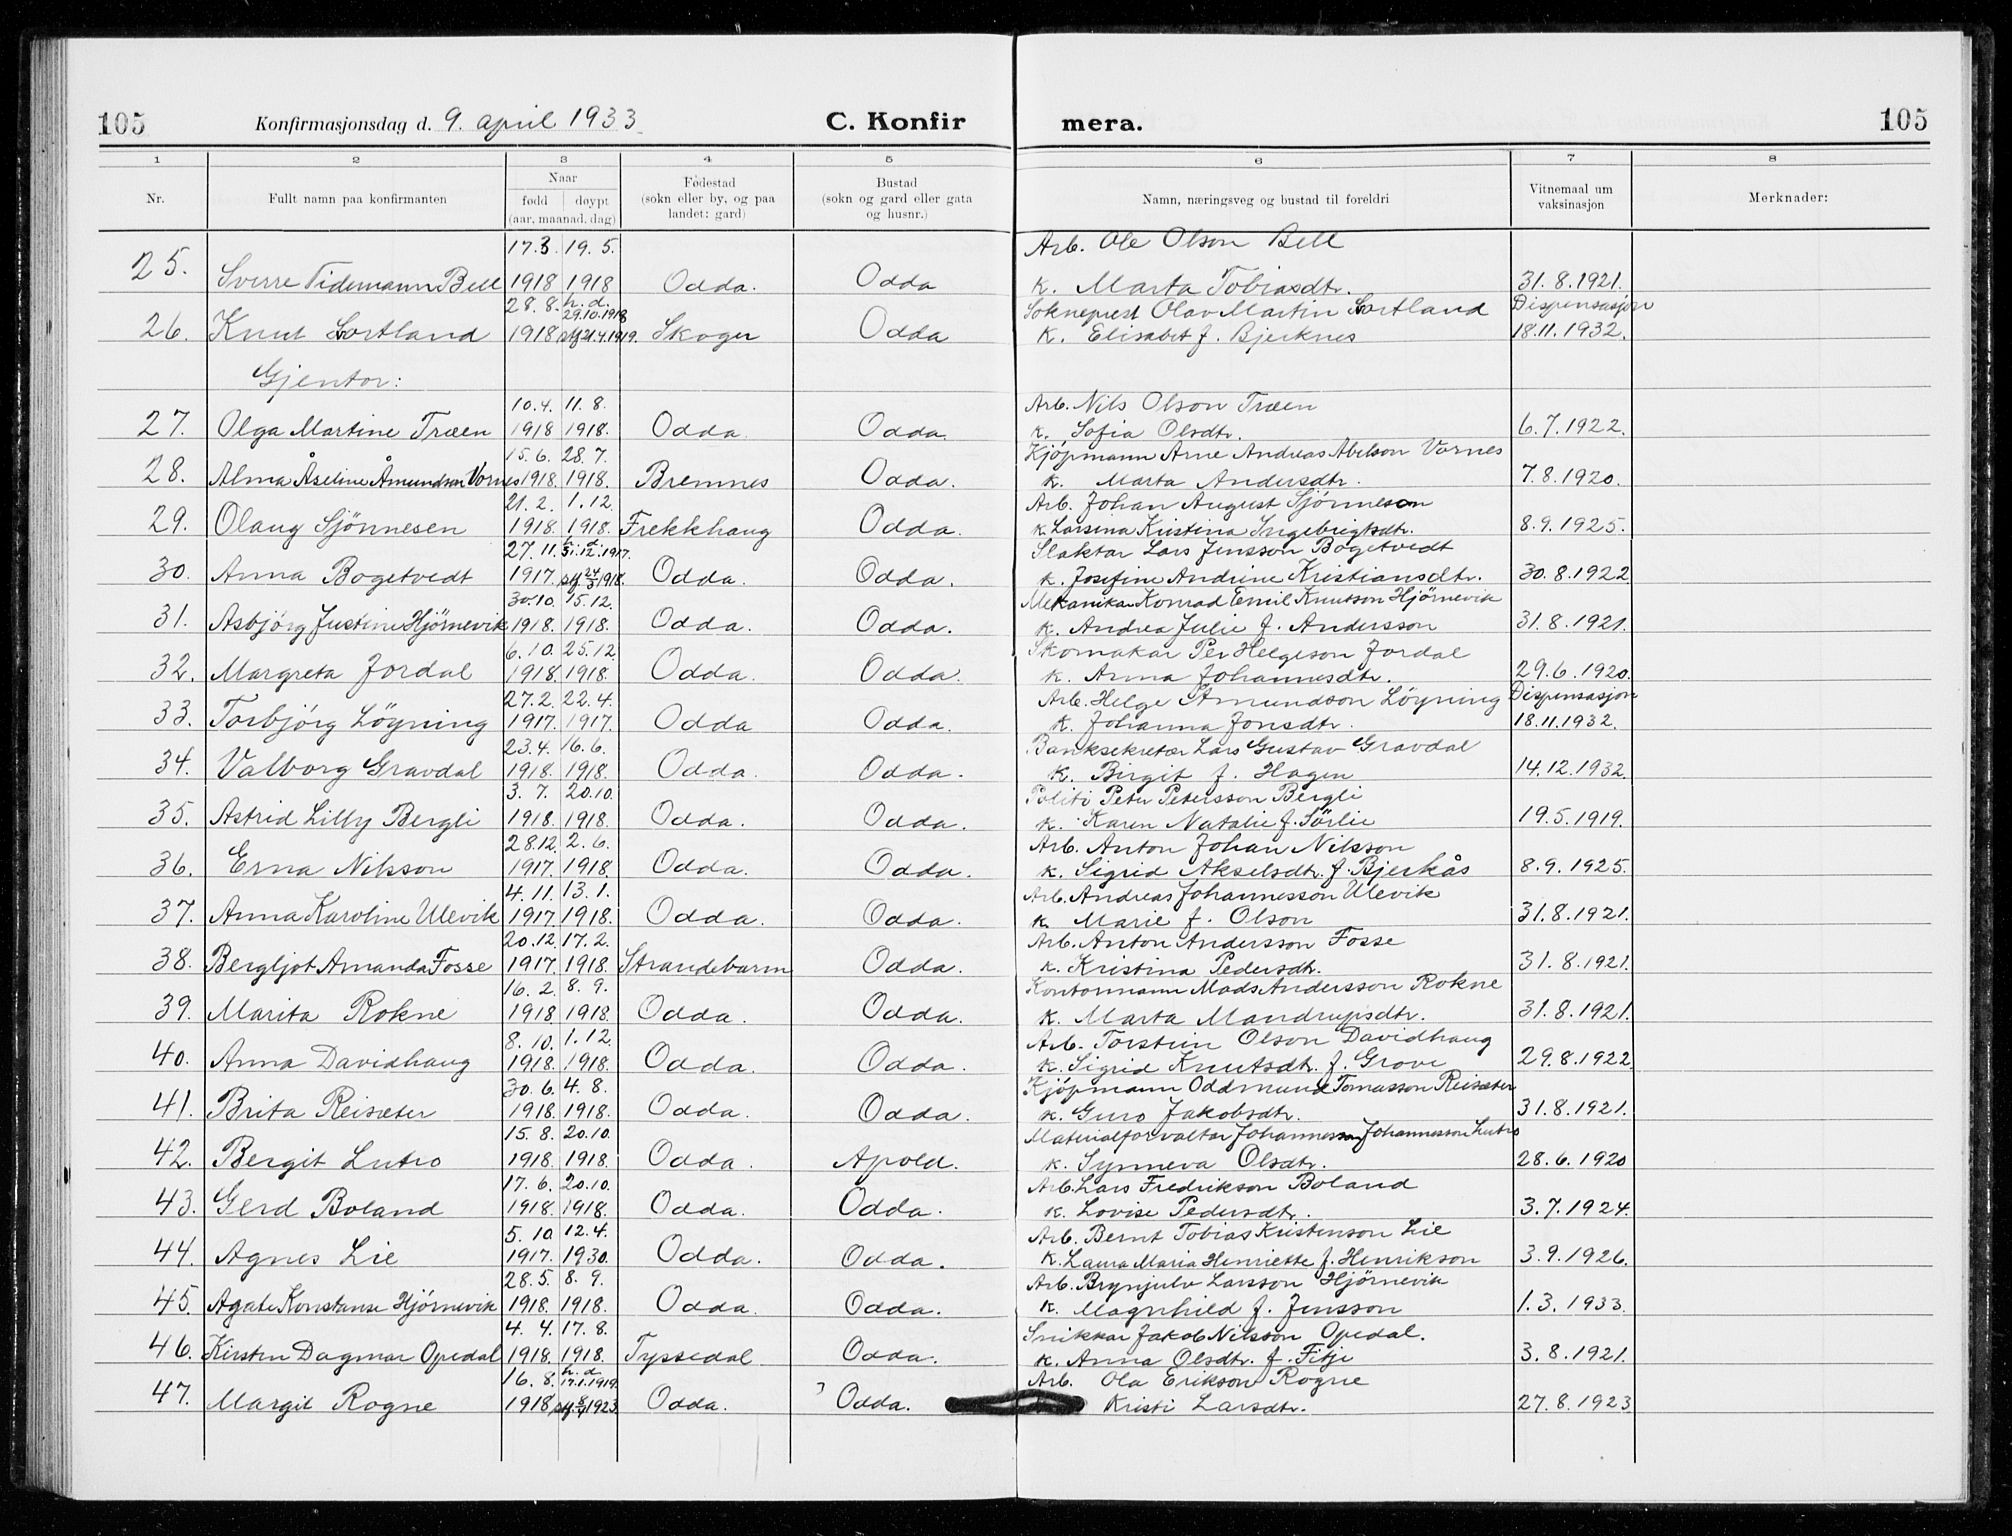 105 Konfirmasjonsdag d. 9. april 1933 C. Konfir mera. 105
1 2 3 4 5 6 7 8
Nr. Fullt namn paa konfirmanten Naar fødd døypt (aar, maanad, dag) Fødestad (sokn eller by, og paa landet: gard) Bustad (sokn og gard eller gata og husnr.) Namn, næringsveg og bustad til foreldri Vitnemaal um vaksinasjon Merknader:
17.3. 19. 5. Arb. Ole Olson Bell
25. Sverre Tidemann Bell 1918 1918 Odda. Odda k. Marta Tobiasdtr. 31.8.1921.
28.8. h. d. 29.10.1918 Sokneprest Olav Martin Sortland Dispensasjon
26. Knut Sortland 1918 stf 21.4.1919. Skoger Odda k. Elisabet f. Bjerknes 18.11.1932.
Gjentor:
10.4. 11.8. Arb. Nils Olson Træen
27. Olga Martine Træen 1918 1918. Odda. Odda. k. Sofia Olsdtr. 6.7.1922.
15.6. 28.7. Kjøpmann Arne Andreas Abelson Vornes
28. Alma Åseline Åmundson Vornes 1918. 1918. Bremnes Odda. k. Marta Andersdtr. 7.8.1920.
21.2. 1.12. Arb. Johan August Sjönnesen
29. Olaug Sjönnesen 1918. 1918. Frekkhaug Odda. k. Larsina Kristina Ingebrigtsdtr. 8.9.1925.
27.11. h. d. 31.12.1917. Slaktar Lars Jensson Bogetvedt
30. Anna Bogetvedt 1917. stf 24/3 1918. Odda. Odda. k. Josefine Andrine Kristiansdtr. 30.8.1922
30.10. 15.12. Mekanikar Konrad Emil Knutson Hjörnevik
31. Asbjörg Justine Hjörnevik 1918. 1918. Odda. Odda. k. Andrea Julie f. Andersson 31.8.1921.
6.10. 25.12. Skomakar Per Helgeson Jordal
32. Margreta Jordal 1918. 1918. Odda. Odda. k. Anna Johannesdtr. 29.6.1920.
27.2. 22.4. Arb. Helge Åmundson Löyning Dispensasjon
33. Torbjörg Löyning 1917. 1917. Odda Odda. k. Johanna Jonsdtr. 18.11.1932.
23.4. 16.6. Banksekretær Lars Gustav Gravdal
34. Valborg Gravdal 1918. 1918. Odda. Odda. k. Birgit f. Hagen 14.12.1932.
3.7. 20.10. Politi Peter Petersson Bergli
35. Astrid Lilly Bergli 1918. 1918. Odda. Odda. k. Karen Natalie f. Sörlie 19.5.1919.
28.12. 2.6. Arb. Anton Johan Nilsson
36. Erna Nilsson 1917. 1918. Odda. Odda. k. Sigrid Akselsdtr. f. Bjerkås 8.9.1925.
4.11. 13.1. Arb. Andreas Johannesson Ulevik
37. Anna Karoline Ulevik 1917. 1918. Odda. Odda. k. Marie f. Olson 31.8.1921.
20.12. 17.2. Arb. Anton Andersson Fosse
38. Bergljot Amanda Fosse 1917. 1918. Strandebarm Odda. k. Kristina Pedersdtr. 31.8.1921.
16.2. 8.9. Kontormann Mads Andersson Rokne
39. Marita Rokne 1918. 1918. Odda. Odda. k. Marta Mandrupsdtr. 31.8.1921.
8.10. 1.12. Arb. Torstein Olson Davidhaug
40. Anna Davidhaug 1918. 1918. Odda. Odda. k. Sigrid Knutsdtr. f. Grove 29.8.1922.
30.6. 4.8. Kjöpmann Oddmund Tomasson Reisæter
41. Brita Reisæter 1918. 1918. Odda. Odda. k. Guro Jakobsdtr. 31.8.1921.
15.8. 20.10. Materialforvaltar Johannesson Johannesson Lutro
42. Bergit Lutro 1918. 1918. Odda. Apold. k. Synneva Olsdtr. 28.6.1920
17.6. 20.10. Arb. Lars Fredrikson Boland
43. Gerd Boland 1918. 1918. Odda. Odda. k. Lovise Pedersdtr. 3.7.1924.
5.10 12.4. Arb. Bernt Tobias Kristenson Lie
44. Agnes Lie 1917. 1930. Odda. Odda. k. Laura Maria Henriette f. Henrikson 3.9.1926.
28.5. 8.9. Arb. Brynjulv Larsson Hjörnevik
45. Agate Konstanse Hjörnevik 1918. 1918. Odda. Odda. k. Magnhild f. Jensson 1.3.1933.
4.4. 17.8. Snikkar Jakob Nilsson Opedal.
46. Kirsten Dagmar Opedal 1918. 1918. Tyssedal Odda. k. Anna Olsdtr. f. Fitje 3.8.1921.
16.8. h. d. 17.1.1919. Arb. Ola Erikson Rogne
47. Margit Rogne 1918 1923 Odda. Odda. Kristi Larsdtr. 27.8.1923.